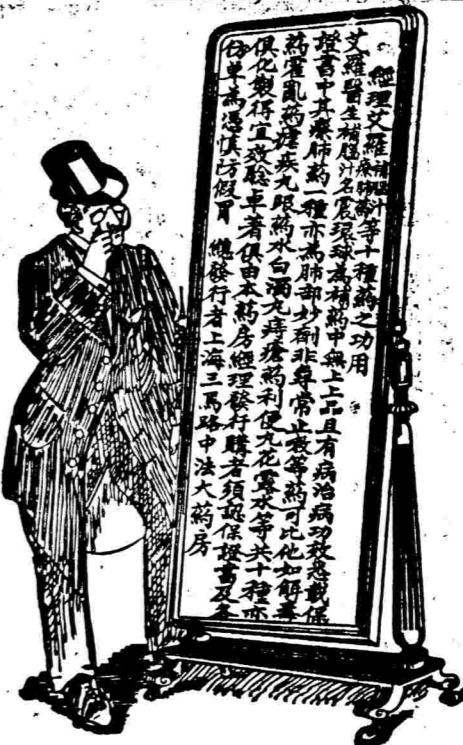 經理艾羅補腦汁療肺藥等十種藥之功用
艾羅醫生補腦汁名震環球為補藥中無上上品且有病治病功效悉載保
證書中其療肺藥一種亦為肺部妙劑非尋常止欬等藥可比他如解毒
藥霍亂藥瘧疾丸眼藥水白濁丸痔瘡藥利便丸花露水等共十種亦
俱化製得宜效驗卓著俱由本藥房經理發行購者須認保證書及
仿單為憑慎防假冒 總發行者上海三馬路中法大藥房